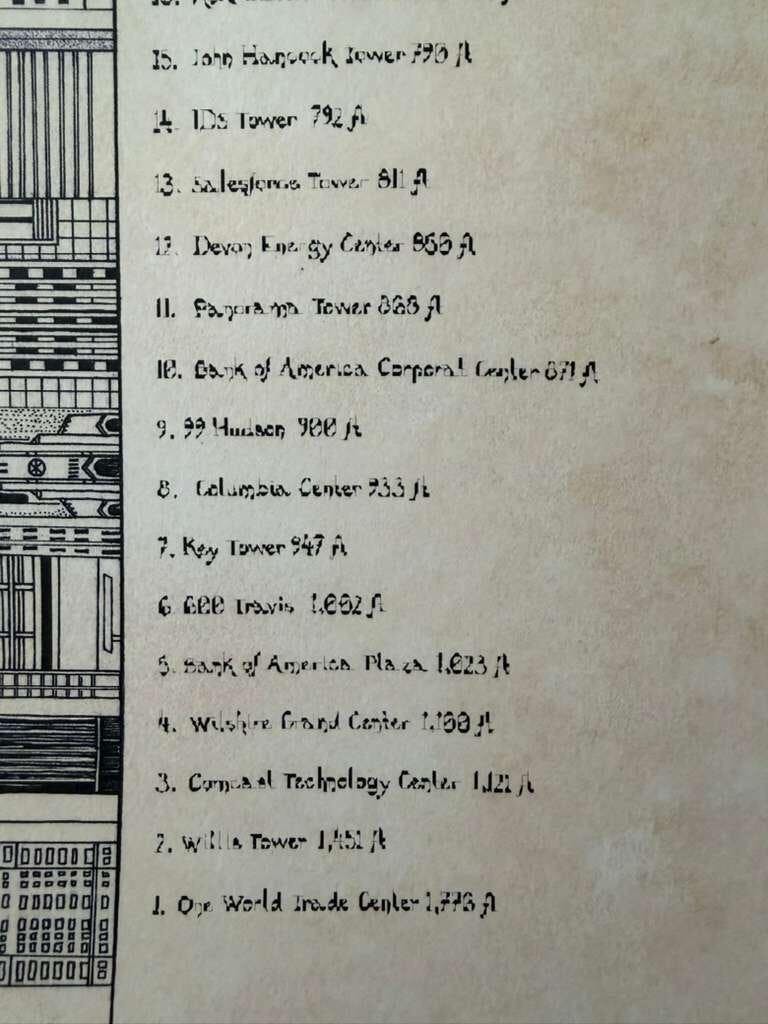 15. John Hancock Tower 790 ft
14. IDS Tower 792 ft
13. Salesforce Tower 811 ft
12. Devon Energy Center 850 ft
11. Panorama Tower 868 ft
10. Bank of America Corporat Center 871 ft
9. 99 Hudson 900 ft
8. Columbia Center 933 ft
7. Key Tower 947 ft
6 600 Travis 1,002 ft
5. Bank of America Plaza 1,023 ft
4. Wilshire Grand Center 1,100 ft
3. Comcast Technology Center 1,121 ft
2. Willis Tower 1,451 ft
1. One World Trade Center 1,776 ft